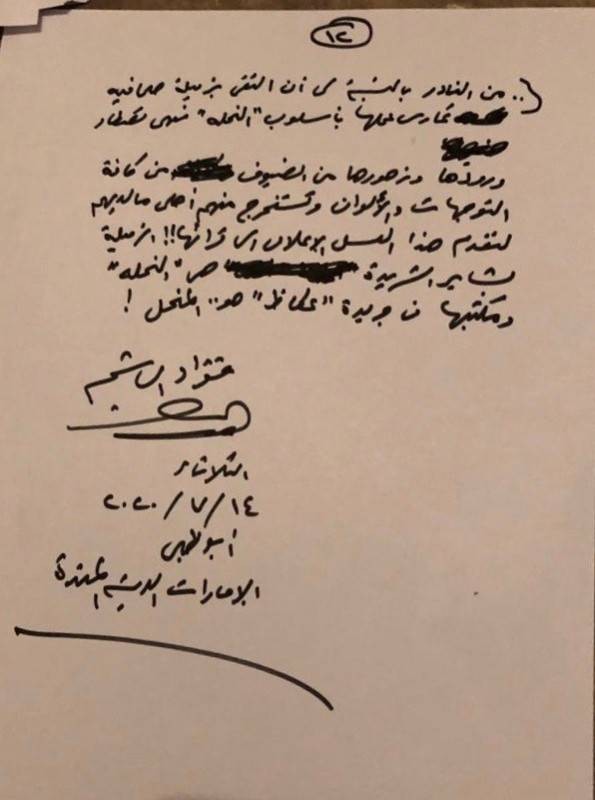 ١٢
.. من النادر بالنسبة لى أن التقى بزميلة صحافيه
تمارس عملها بأسلوب "النحله" فهى تختار
ورودها وزهورها من الضيوف من كافة
التوجهات والألوان وتستخرج منهم أحلى مالديهم
لتقدم هذا العسل الإعلامى الى قرائها!! الزميلة
هى "النحله"
ومكتبها فى جريدة "عكاظ" هو.. المنحل !
فؤاد الهاشم
الثلاثاء
١٤/٧/٢٠٢٠
أبوظبى
الإمارات العربية المتحدة